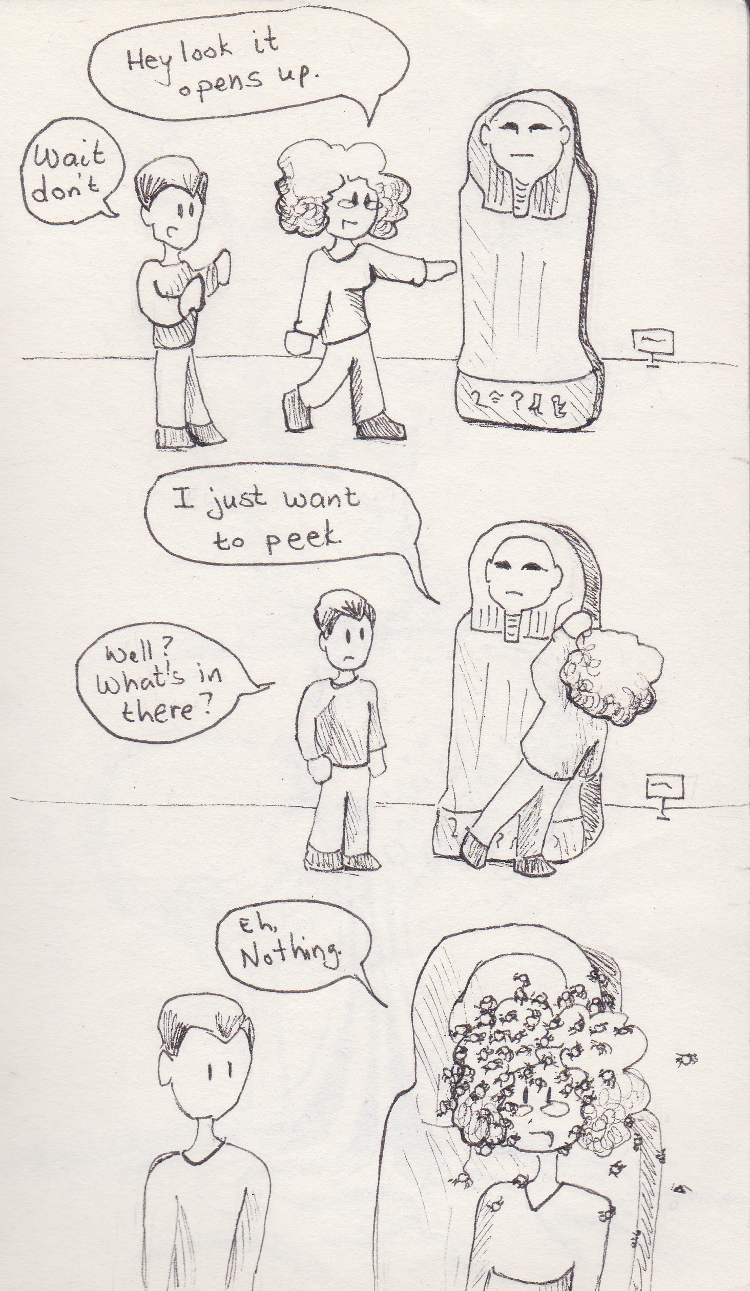 Hey look it
opens up.
Wait
don't
I just want
to peek.
Well?
What's in
there?
Eh,
Nothing.